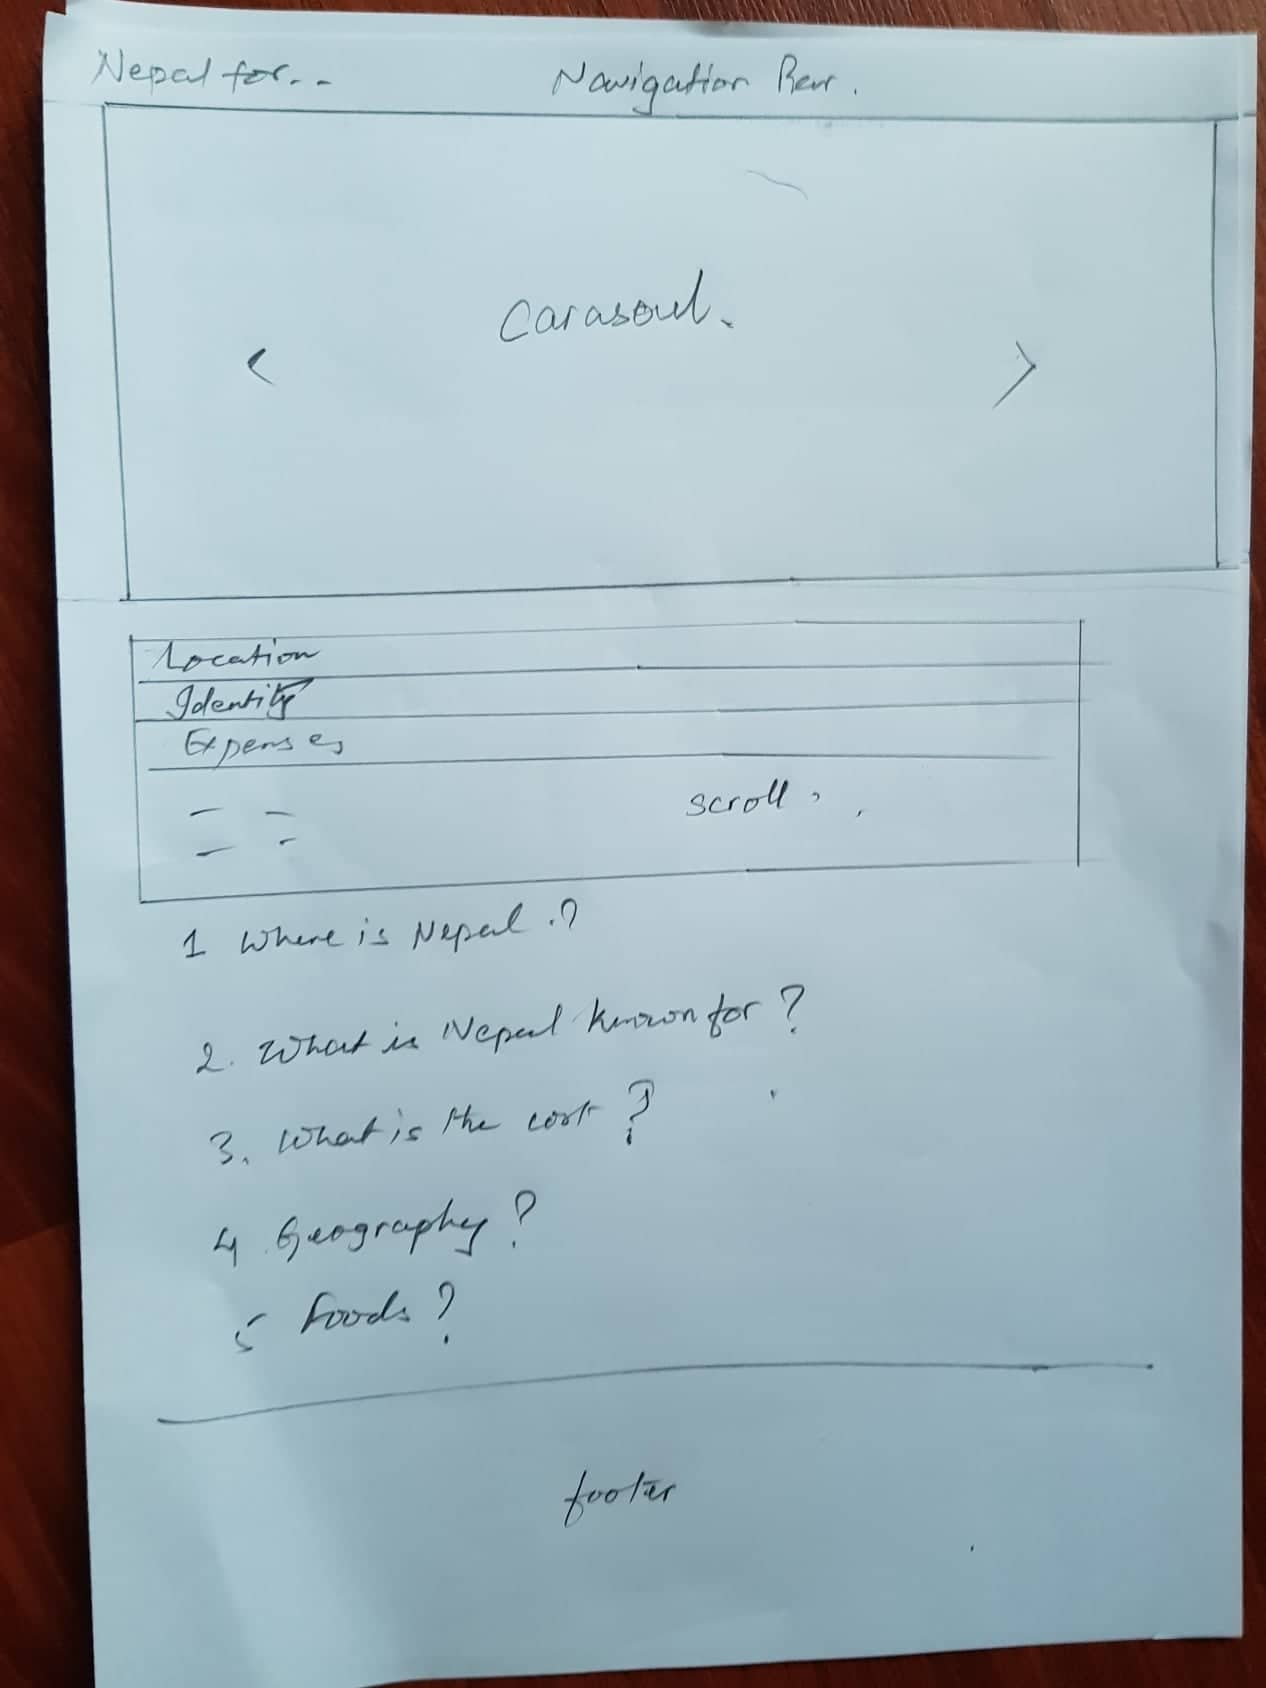 Nepal for.. Navigation Bar.
Carasoul.
< >
Location
Identity
Expenses
scroll
1 Where is Nepal.?
2. What is Nepal known for?
3. What is the cost?
4 Geography?
5 Foods?
footer